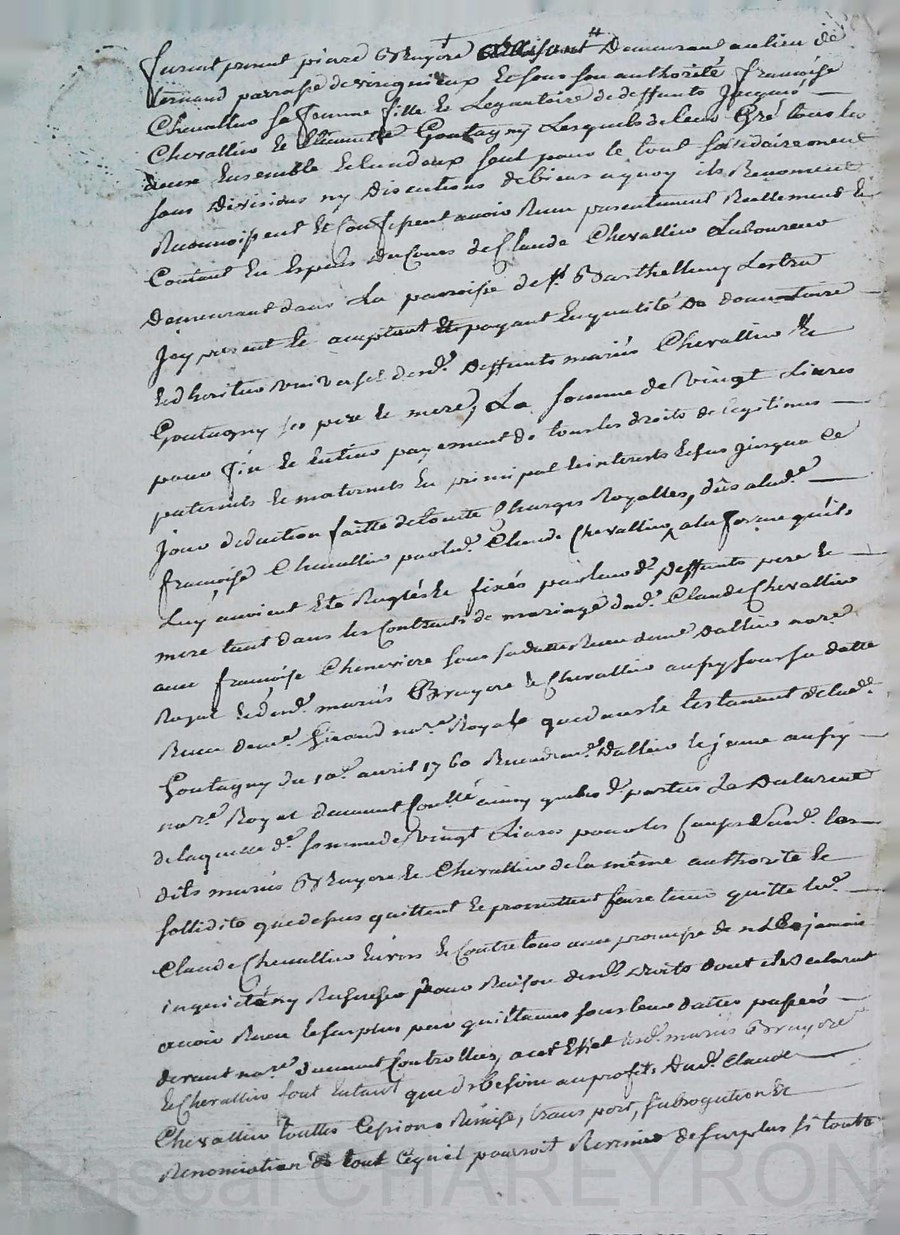 furent present pierre Bruyere demeurant au lieu de
vernand parroisse de vinquieux et sous son authorité francoise
Chevallier sa femme fille et Legautaire de deffunts Jacques
Chevallier et Goutagny Lesquels de leur Gré tous les
deux Ensemble et lun deux seul pour le tout solidairement
sans Division ny Discution de biens a quoy ils Renoncent
Reconnoissent et Confessent avoir Recu presentement Reellement et
Contant En Especes du Cours de Claude Chevallier Laboureur
Demeurant dans La parroisse de St Barthellemy Lestra
Icy present et acceptant et payant En qualité De donnataire
et heritier universel desd. Deffunts mariés Chevallier et
Goutagny ses pere et mere, La somme de vingt Livres
pour fin et Entier payement de tous les droits de Legitimes
paternels et maternels En principal et interests Echus jusqua Ce
Jour deduction faitte de toutte Charges Royalles, dûs alad.
francoise Chevallier par led. Claude Chevallier, a la forme quils
Luy avoient Eté Reglés et fixés par leurd. Deffunts pere et
mere tant dans les Contrats de mariage dud. Claude Chevallier
avec francoise Cheneviere sous sa datte Recu dem Dallier nore
Royal et desd. mariés Bruyere et Chevallier aussy sous sa datte
Recu dem. Giraud nore Royal que dans le testament de lad.
Goutagny du 10e avril 1760 Recu dud. Dallier le jeune aussy
nore Royal dument Conllé ainsy que les d. parties Le Declarent
de laquelle d. somme de vingt Livres pour les Causes susd. les
dits mariés Bruyere et Chevallier de la même authorité et
sollidité que dessus quittent et promettent faire tenir quitte led.
Claude Chevallier Envers et Contre tous avec promesse de n En jamais
inquieté ny Recherché pour Raison desd. Droits dont ils Declarent
avoir Recu le surplus par quittances sous leur dattes passées
devant nore dument Controllées, a cet Effet lesd. mariés Bruyere
et Chevallier font Entant que de Besoin au profit Dud. Claude
Chevallier touttes Cession Remise, transport, subrogation et
Renonciation de tout Ce quil pourroit Revenir de surplus si toutte
Pascal CHAREYRON